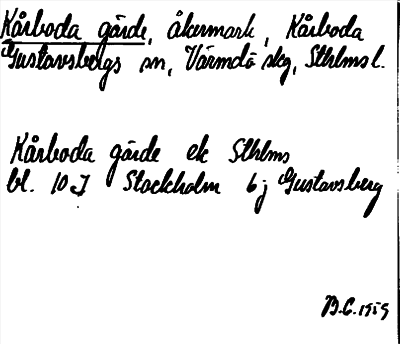 Kårboda gärde, åkermark, Kårboda
Gustavsbergs sn, Värmdö skg, Sthlms l.
Kårboda gärde ek Sthlms
bl. 10 I Stockholm 6 j Gustavsberg
B.C. 1959